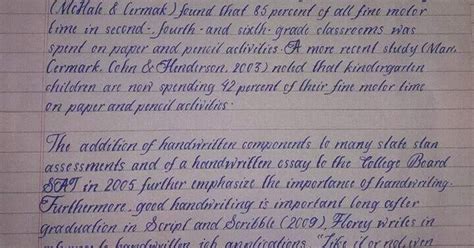 (McHale & Cermak) found that 85 percent of all fine motor
time in second-, fourth- and sixth-grade classrooms was
spent on paper and pencil activities. A more recent study (Marr,
Cermark, Cohn & Henderson, 2003) noted that kindergarten
children are now spending 42 percent of their fine motor time
on paper and pencil activities.
The addition of handwritten components to many state stan
assessments and of a handwritten essay to the College Board
SAT in 2005 further emphasize the importance of handwriting.
Furthermore, good handwriting is important long after
graduation in Script and Scribble (2009), Florey writes in
to handwritten job applications, "Like it or not, even